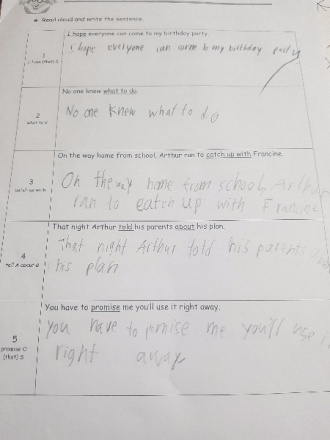 Read aloud and write the sentence.
I hope everyone can come to my birthday party.
1
I hope everyone can come to my birthday party
No one knew what to do.
2
what to V
No one knew what to do
On the way home from school, Arthur ran to catch up with Francine.
3
catch up with
On the way home from school, Arthur
ran to catch up with Francine
That night Arthur told his parents about his plan.
4
tell A about B
That night Arthur told his parents
his plan
You have to promise me you'll use it right away.
5
promise O
(that) S
you have to promise me you'll use
right away